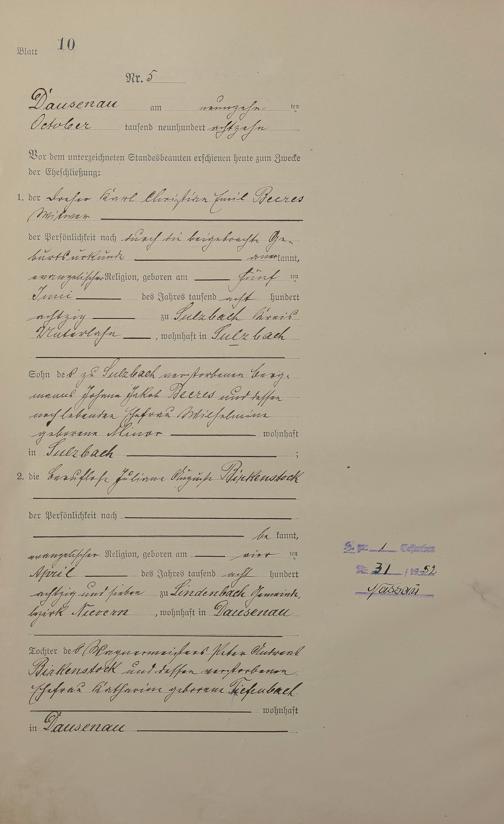 Blatt 10
Nr. 5
Dausenau am neunzehn ten
October tausend neunhundert achtzehn
Vor dem unterzeichneten Standesbeamten erschienen heute zum Zwecke
der Eheschließung:
1. der Dreher Karl Christian Emil Beeres
Witwer
der Persönlichkeit nach durch die beigebrachte Ge-
burtsurkunde anerkannt,
evangelischer Religion, geboren am fünf ten
Juni des Jahres tausend acht hundert
achtzig zu Sulzbach Kreis
Unterlahn, wohnhaft in Sulzbach
Sohn des zu Sulzbach verstorbenen Berg-
manns Johann Jakob Beeres und dessen
noch lebenden Ehefrau Wilhelmine
geborene Minor wohnhaft
in Sulzbach ;
2. die berufslose Juliane Auguste Birkenstock
der Persönlichkeit nach
be kannt,
evangelischer Religion, geboren am vier ten
April des Jahres tausend acht hundert
achtzig und sieben zu Lindenbach Gemeinde
bezirk Nievern, wohnhaft in Dausenau
Tochter des Wagnermeisters Peter
Birkenstock und dessen verstorbenen
Ehefrau Katharine geborene Tiefenbach
wohnhaft
in Dausenau
1
31 1952
Nassau